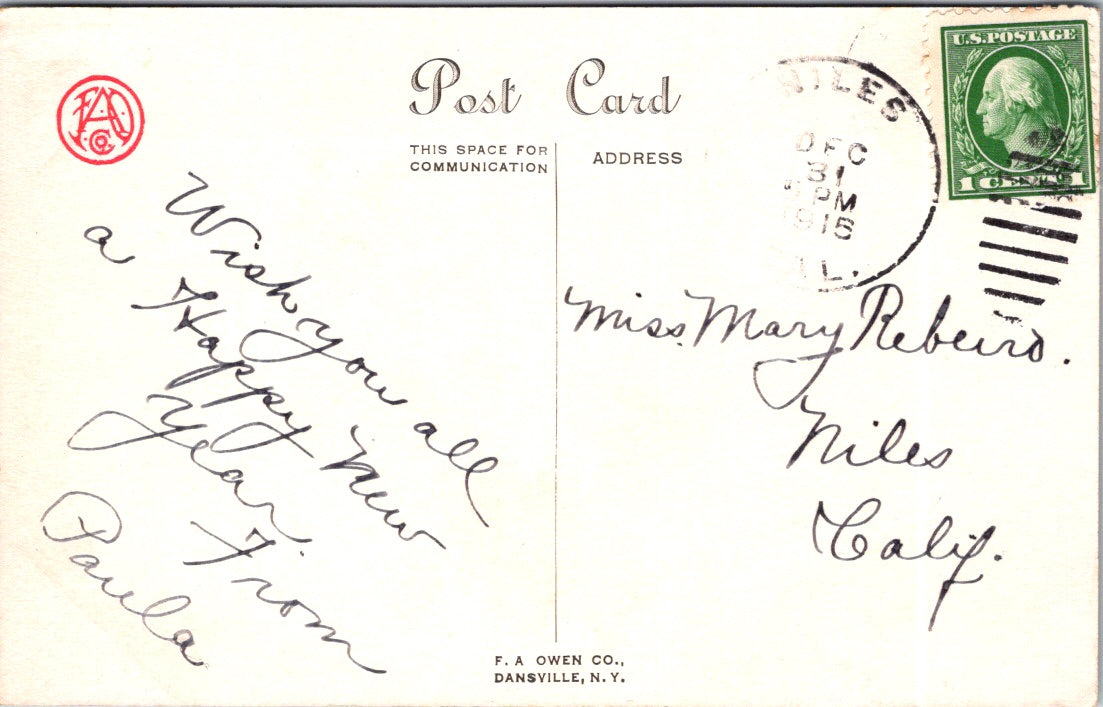 Post Card
THIS SPACE FOR
COMMUNICATION
ADDRESS
U.S. POSTAGE
1 CENT 1
NILES
DEC
31
PM
1915
Wish you all
a Happy New
Year. From
Paula
Miss. Mary Rebeiro.
Niles
Calif.
F. A OWEN CO.,
DANSVILLE, N. Y.